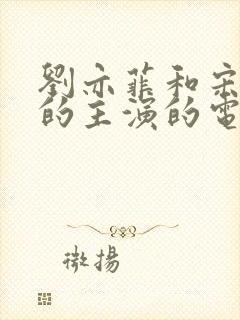 劉亦菲和宋
的主演的電
微揚